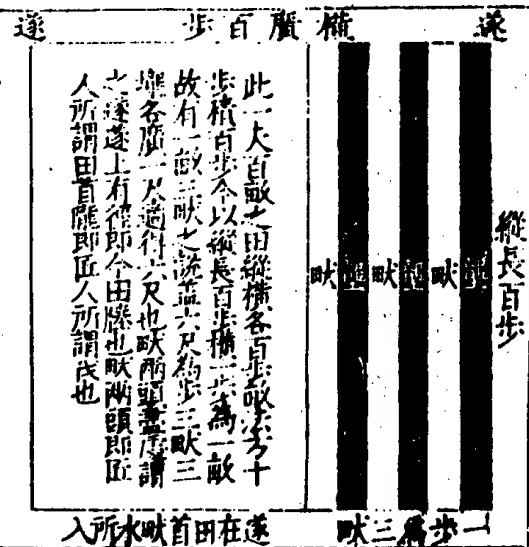 遂
橫廣百步
遂
縱長百步
壠
畎
壠
畎
壠
畎
此一夫百畝之田縱橫各百步畝法方十
步積百步今以縱長百步橫一步為一畝
故有一畝三畎之說蓋六尺為步三畎三
壠各廣一尺適得六尺也畎兩頭盡處謂
之遂遂上有徑即今田塍也畎兩頭即匠
人所謂田首壠即匠人所謂伐也
一步為三畎
遂在田首畎水所入